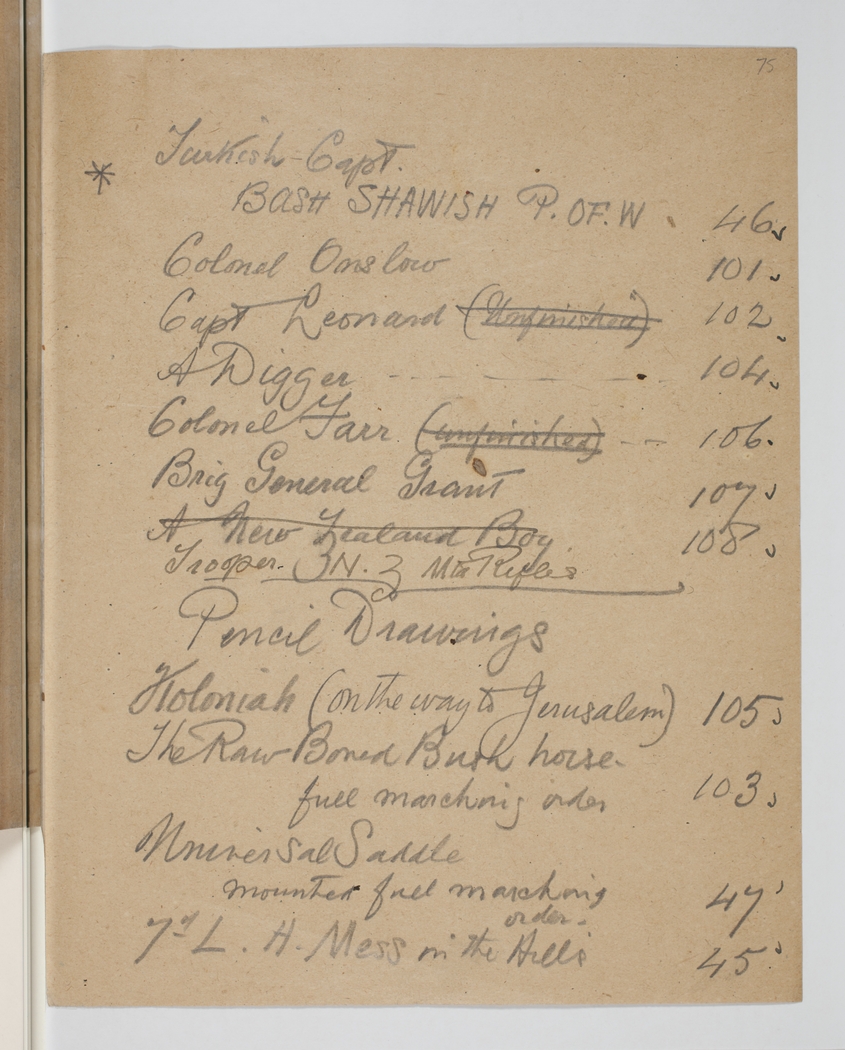 75
Turkish-Capt.
* BASH SHAWISH P. OF. W. 46
Colonel Onslow 101
Capt Leonard (Unfinished) 102
A Digger - - - - 104
Colonel Farr (unfinished) -- 106.
Brig General Grant 107
A New Zealand Boy 108
Trooper. N. Z Mtd Rifles
Pencil Drawings
Holoniah (on the way to Jerusalem) 105
The Raw-Boned Bush horse.
full marching order 103
Universal Saddle
mounted full marching 47
order.
7th L. H. Mess in the Hills 45